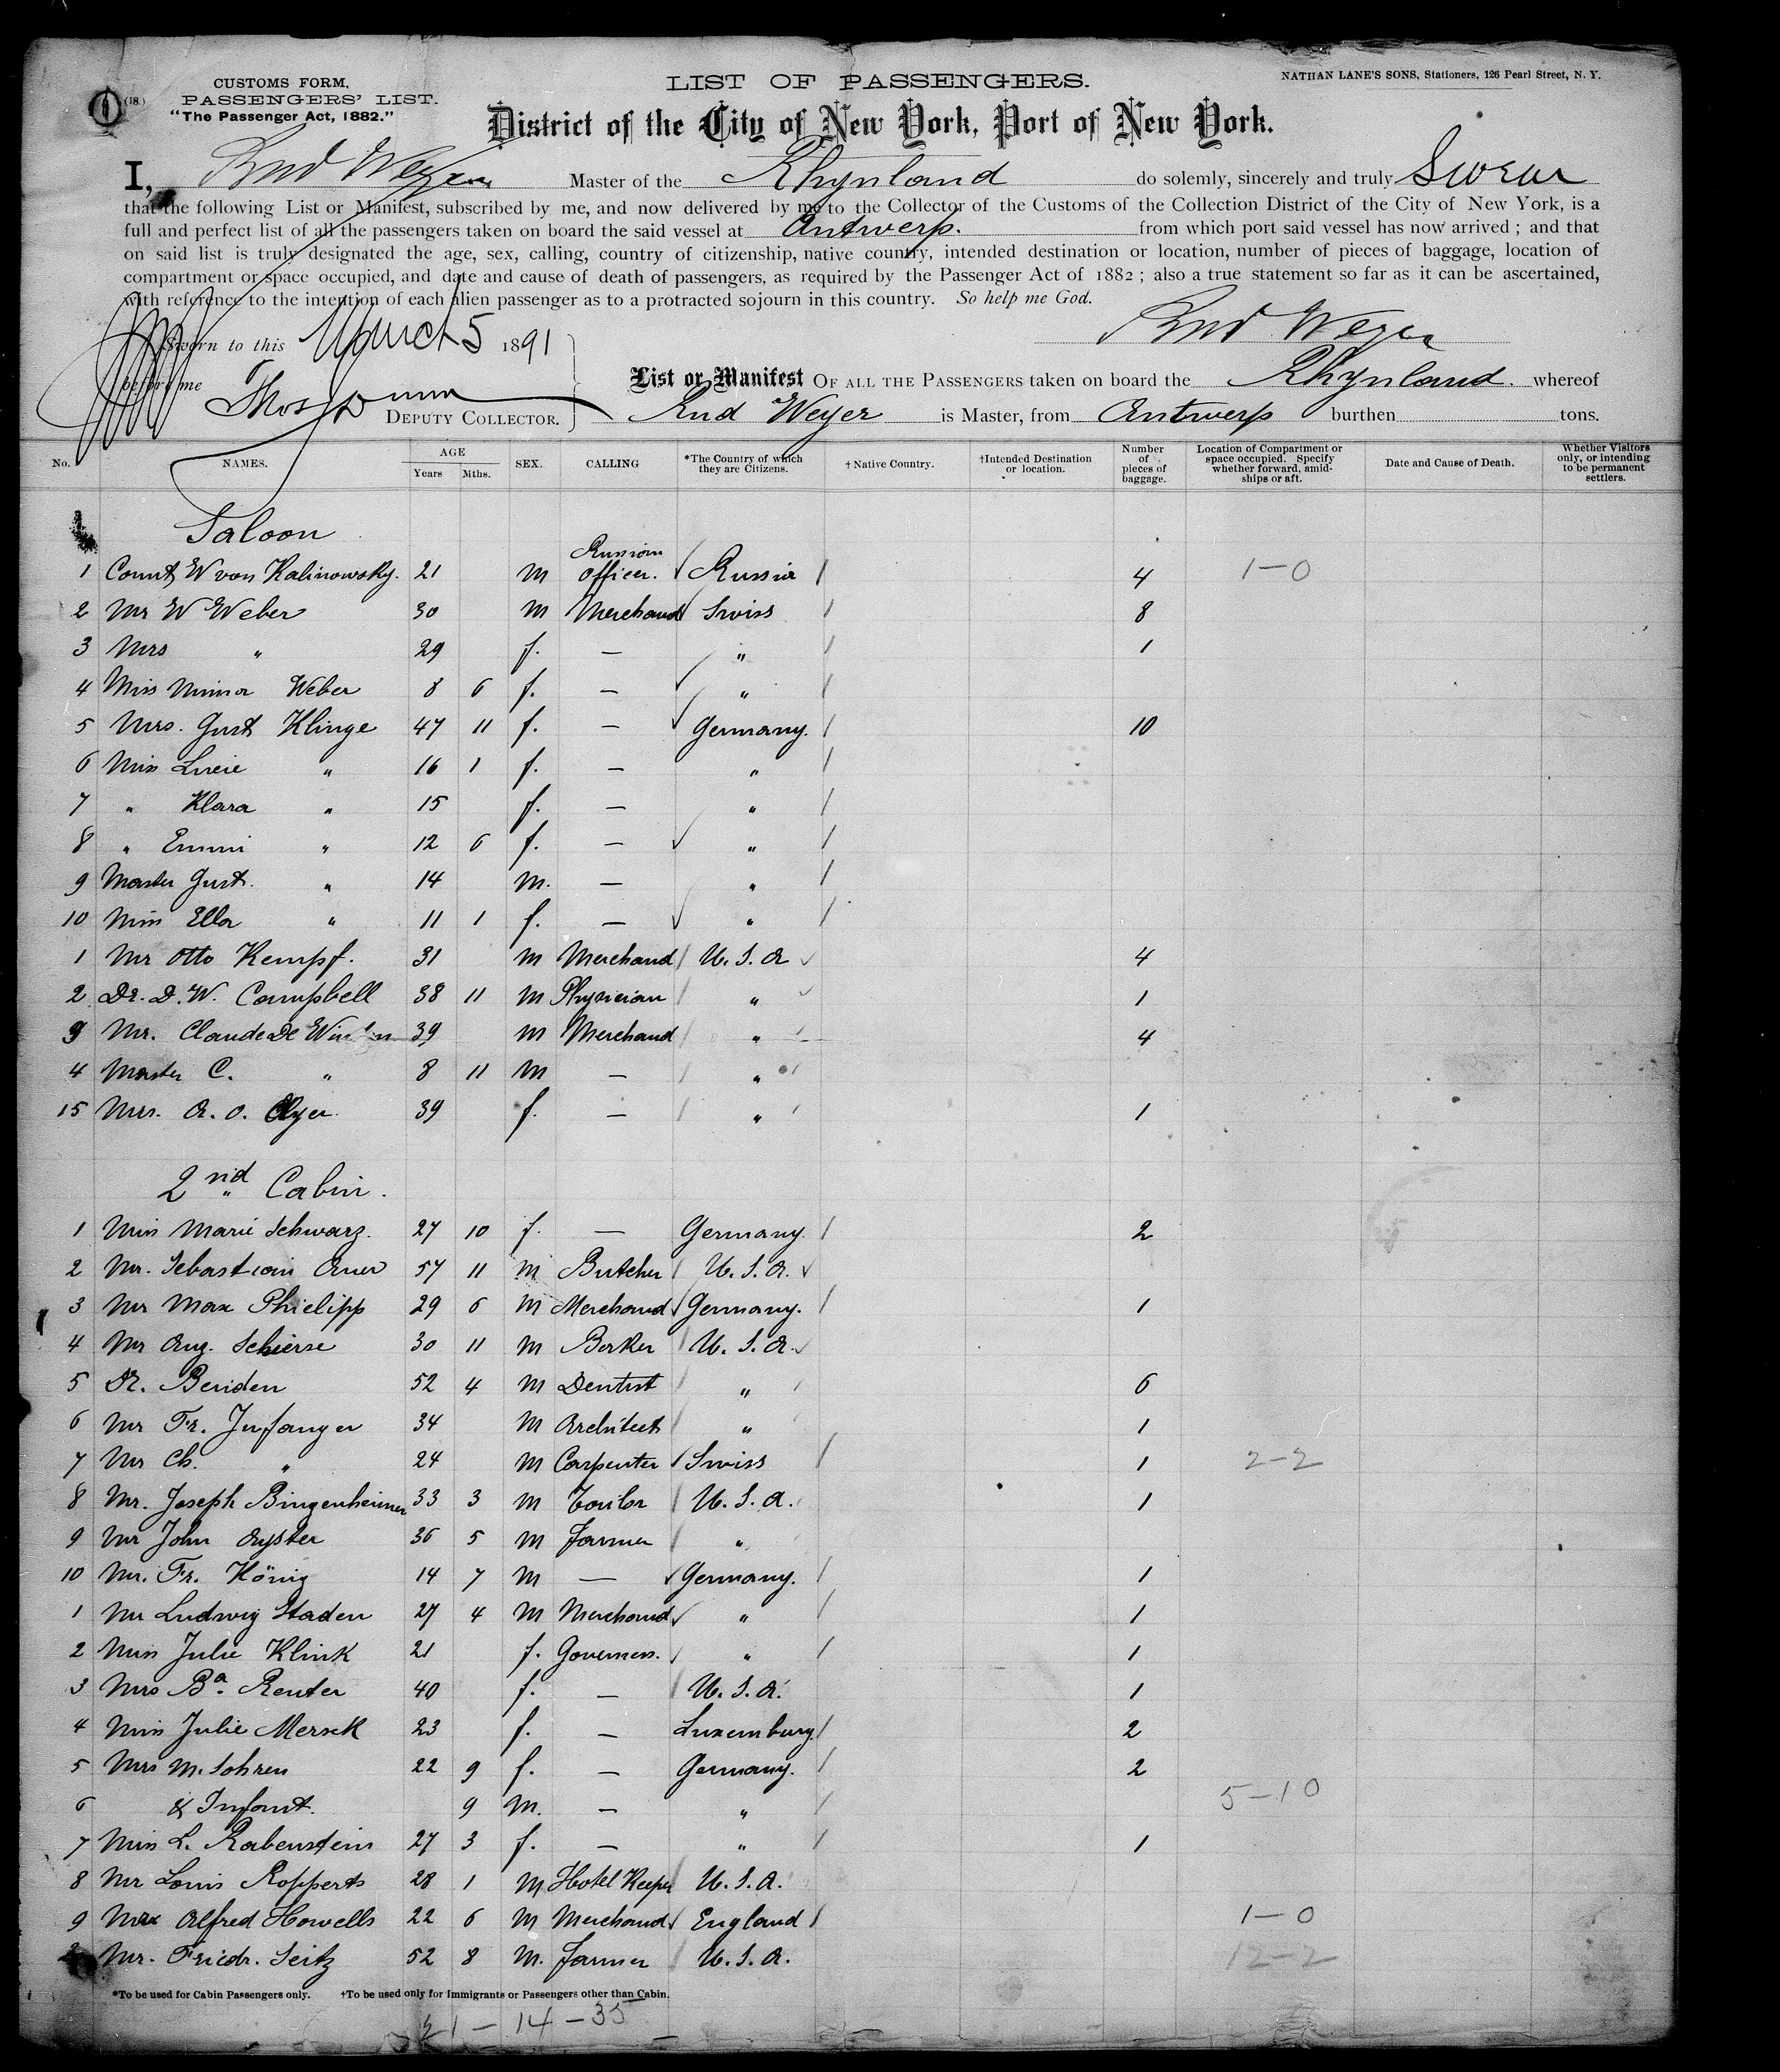 (18.)
CUSTOMS FORM,
PASSENGERS' LIST.
"The Passenger Act, 1882."
LIST OF PASSENGERS.
NATHAN LANE'S SONS, Stationers, 126 Pearl Street, N. Y.
District of the City of New York, Port of New York.
I, Rud Weyer Master of the Rhynland do solemly, sincerely and truly Swear
that the following List or Manifest, subscribed by me, and now delivered by me to the Collector of the Customs of the Collection District of the City of New York, is a
full and perfect list of all the passengers taken on board the said vessel at Antwerp. from which port said vessel has now arrived ; and that
on said list is truly designated the age, sex, calling, country of citizenship, native country, intended destination or location, number of pieces of baggage, location of
compartment or space occupied, and date and cause of death of passengers, as required by the Passenger Act of 1882 ; also a true statement so far as it can be ascertained,
with reference to the intention of each alien passenger as to a protracted sojourn in this country. So help me God.
Rud Weyer
Sworn to this March 5 1891
before me Thos Dunn
DEPUTY COLLECTOR.
List or Manifest OF ALL THE PASSENGERS taken on board the Rhynland. whereof
Rud Weyer is Master, from Antwerp burthen tons.
No. NAMES. AGE Years Mths. SEX. CALLING *The Country of which they are Citizens. †Native Country. †Intended Destination or location. Number of pieces of baggage. Location of Compartment or space occupied. Specify whether forward, amidships or aft. Date and Cause of Death. Whether Visitors only, or intending to be permanent settlers.
Saloon
1 Count W von Kalinowsky. 21 m Russian officer. Russia 4 1-0
2 Mr W Weber 30 m Merchand Swiss 8
3 Mrs " 29 f. — " 1
4 Miss Minna Weber 8 6 f. — "
5 Mrs. Gust Klinge 47 11 f. — Germany. 10
6 Miss Lucie " 16 1 f. — "
7 " Klara " 15 f. — "
8 " Emmi " 12 6 f. — "
9 Master Gust. " 14 m. — "
10 Miss Ella " 11 1 f. — "
1 Mr Otto Kempf. 31 m Merchand U. S. A 4
2 Dr. D. W. Campbell 38 11 m Physician " 1
3 Mr. Claude De 39 m Merchand " 4
4 Master C. " 8 11 m — "
15 Mrs. A. O. Ayer 39 f. — " 1
2nd Cabin.
1 Miss Marie Schwarz. 27 10 f. — Germany. 2
2 Mr. Sebastian Auer 57 11 m Butcher U. S. A.
3 Mr Max Phielipp 29 6 m Merchand Germany. 1
4 Mr Aug. Schierse 30 11 m Barker U. S. A.
5 Dr. Beriden 52 4 m Dentist " 6
6 Mr Fr. Infanger 34 m Architect " 1
7 Mr Ch. " 24 m Carpenter Swiss 1 2-2
8 Mr. Joseph Bingenheimer 33 3 m Tailor U. S. A. 1
9 Mr John Oyster 36 5 m Farmer "
10 Mr. Fr. König 14 7 m — Germany. 1
1 Mr Ludwig Staden 27 4 m Merchand " 1
2 Miss Julie Klink 21 f. Governess. " 1
3 Mrs Ba. Reuter 40 f. — U. S. A. 1
4 Miss Julie Mersek 23 f. — Luxemburg. 2
5 Mrs M. Sohren 22 9 f. — Germany. 2
6 & Infant. 9 m. — " 5-10
7 Miss L. Rabenstein 27 3 f. — " 1
8 Mr Louis Ropperts 28 1 m Hotel Keeper U. S. A.
9 Mr Alfred Howells 22 6 m Merchand England 1-0
2 Mr. Friedr. Seitz 52 8 m. Farmer U. S. A. 12-2
*To be used for Cabin Passengers only. †To be used only for Immigrants or Passengers other than Cabin.
21 - 14 - 35